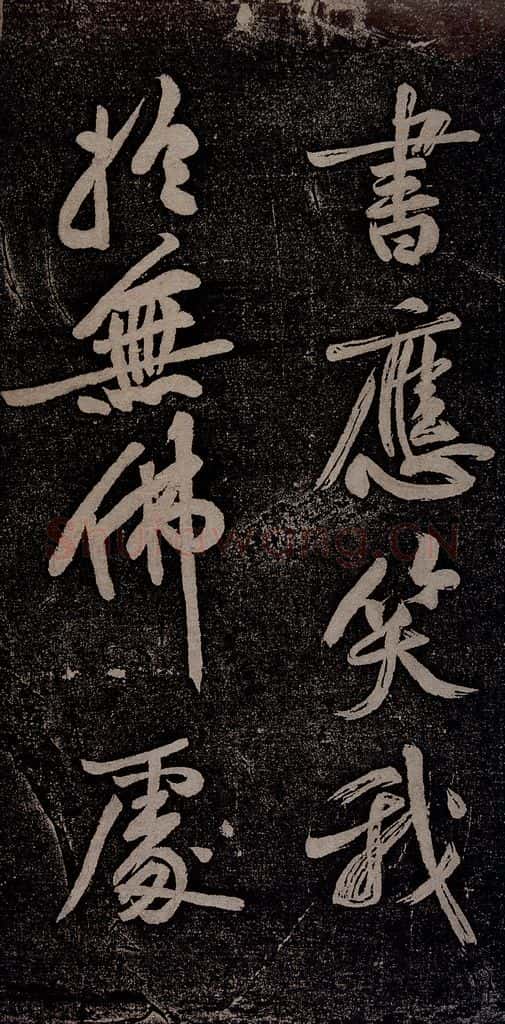 書應笑我
於無佛處
Shufawang.CN